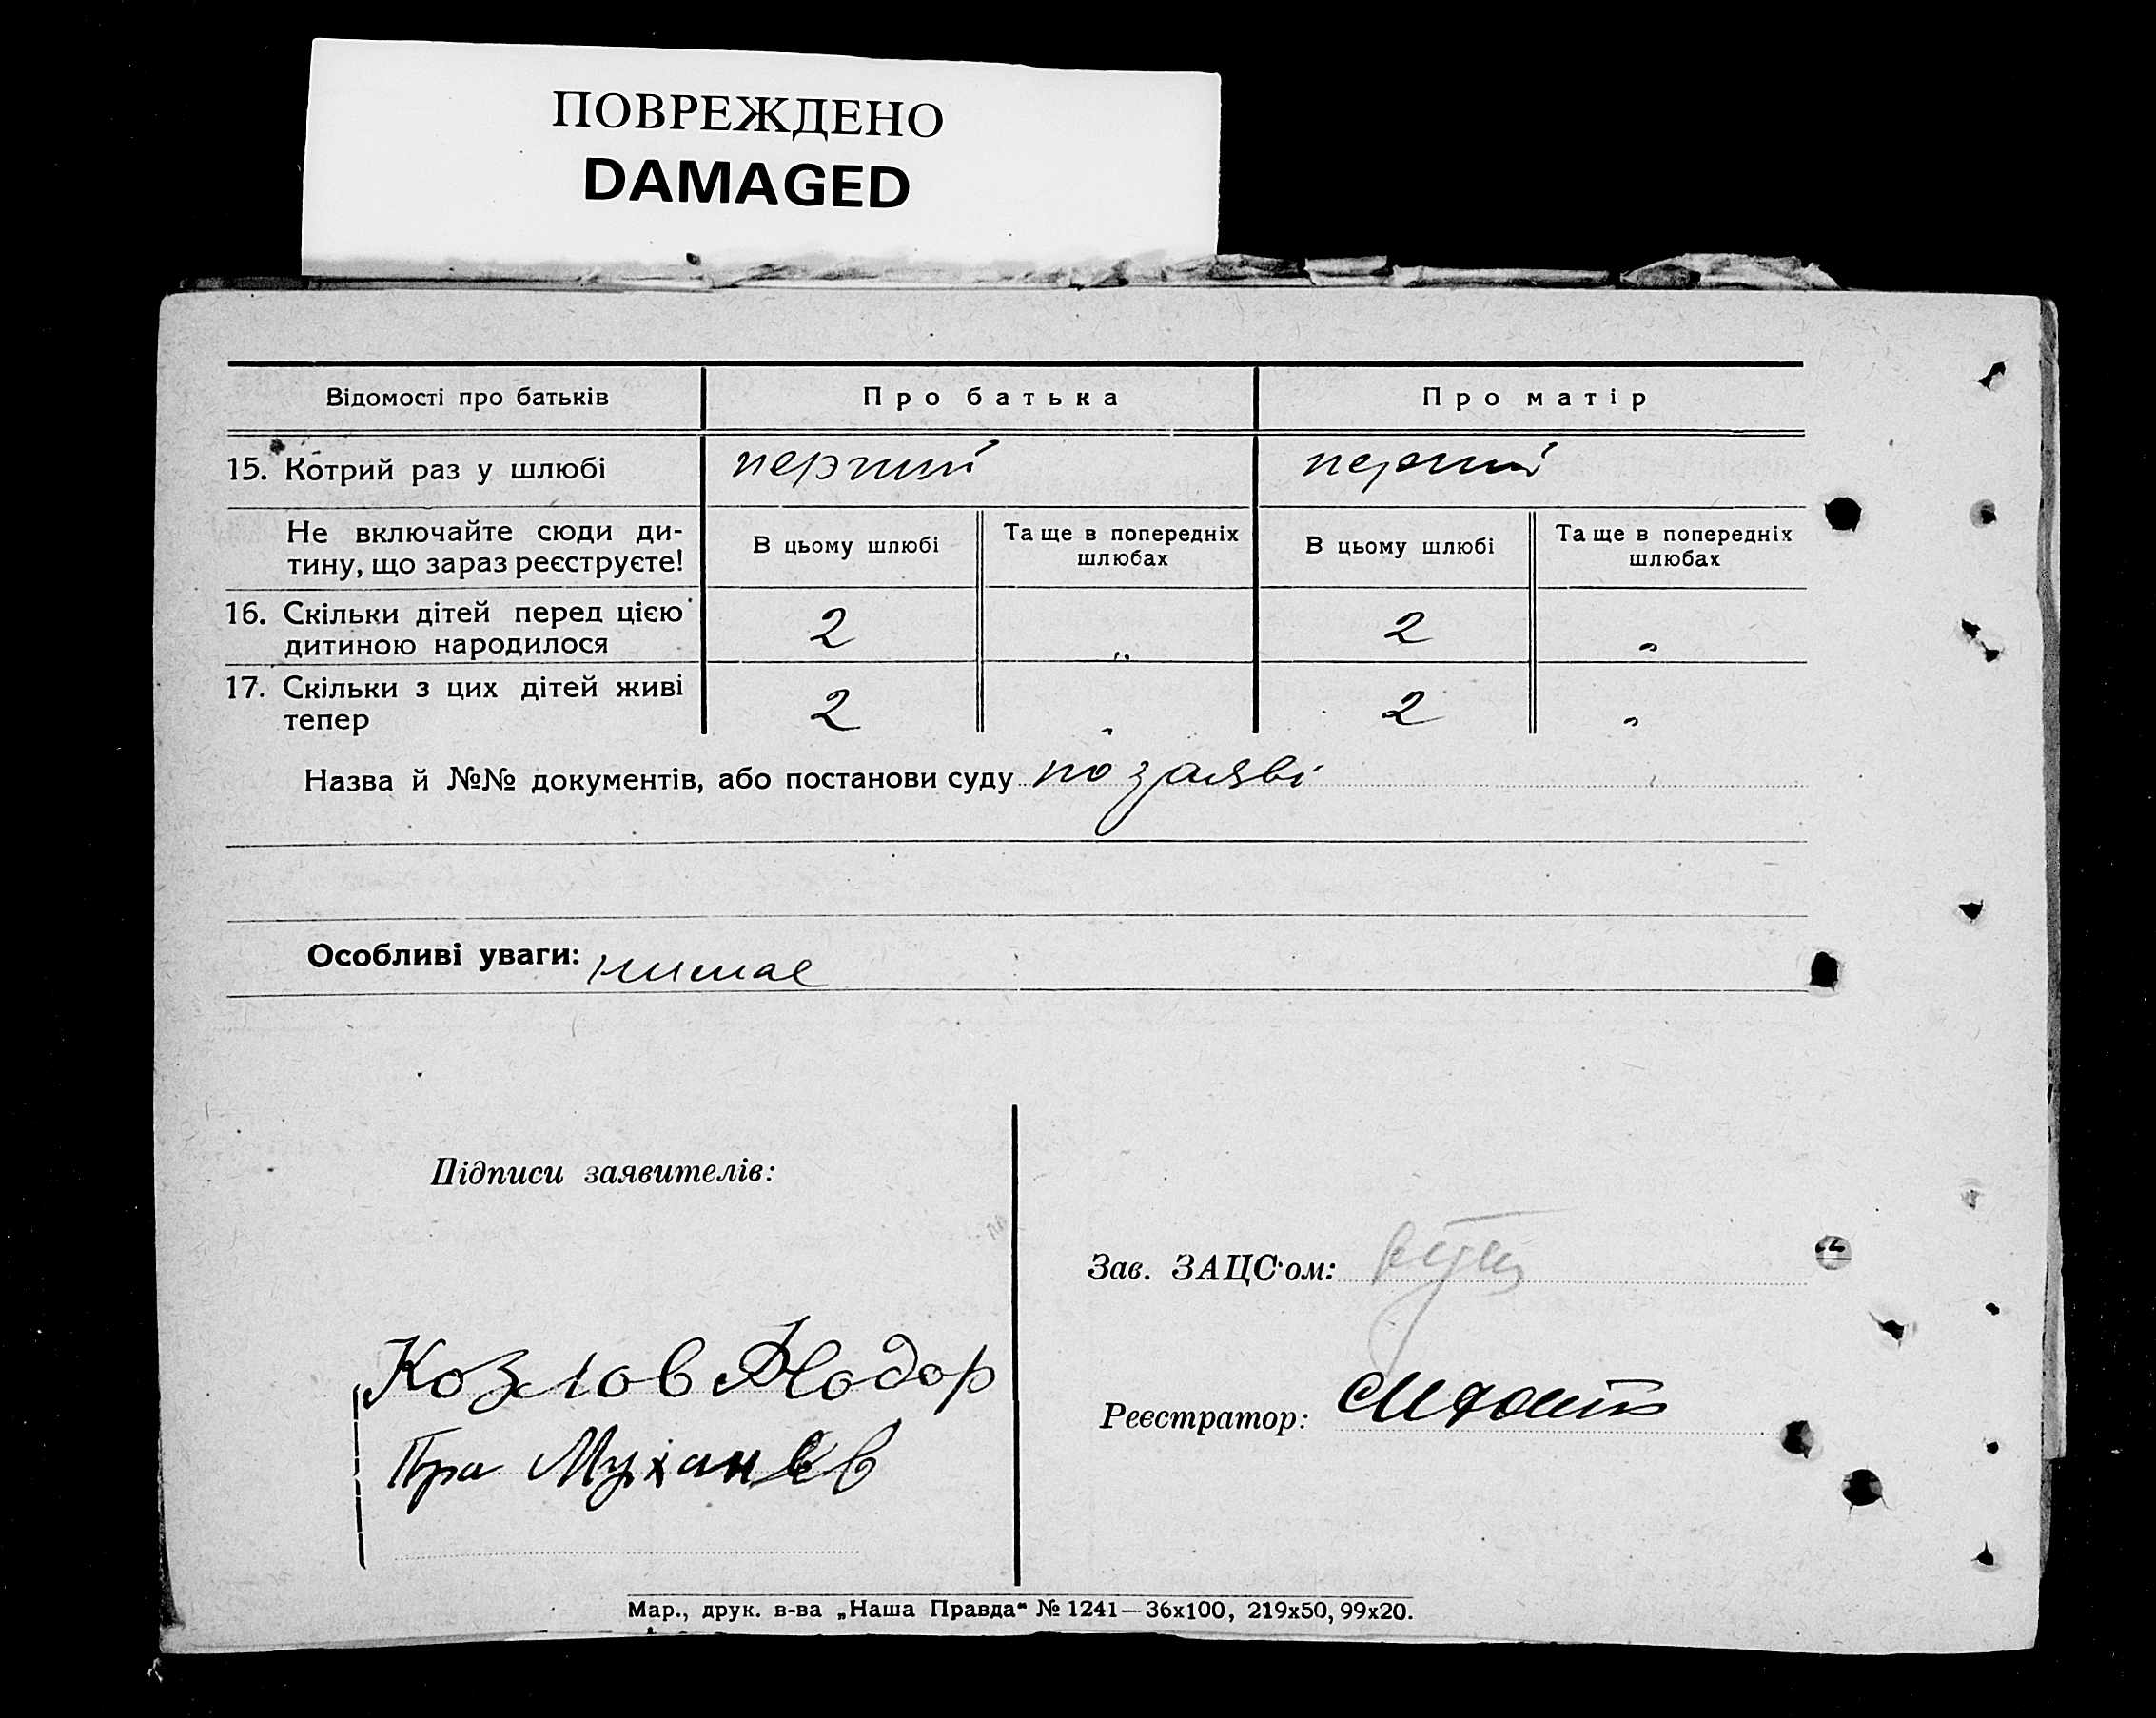 ПОВРЕЖДЕНО
DAMAGED
Відомості про батьків
Про батька
Про матір
15. Котрий раз у шлюбі
перший
перший
Не включайте сюди ди-
тину, що зараз реєструєте!
В цьому шлюбі
Та ще в попередніх
шлюбах
В цьому шлюбі
Та ще в попередніх
шлюбах
16. Скільки дітей перед цією
дитиною народилося
2
„
2
„
17. Скільки з цих дітей живі
тепер
2
„
2
„
Назва й №№ документів, або постанови суду по заяві
Особливі уваги: нимае
Підписи заявителів:
Зав. ЗАЦС'ом:
Козлов
Реєстратор:
Мар., друк. в-ва „Наша Правда“ № 1241—36х100, 219х50, 99х20.